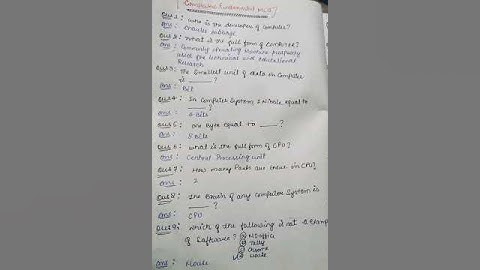 Computer Fundamental MCQ
Ques 1: Who is the developer of Computer?
Ans: Charles Babbage
Ques 2: What is the full form of COMPUTER?
Ans: Commonly operating Machine purposely
used for technical and educational
Research
Ques 3: The Smallest unit of data in Computer
is _____ ?
Ans: Bit
Ques 4: In Computer System, 1 Nibble equal to
_____ ?
Ans: 4 Bits
Ques 5: one Byte equal to _____ ?
Ans: 8 Bits
Ques 6: what is the full form of CPU?
Ans: Central Processing unit
Ques 7: How many Parts are there in CPU?
Ans: 3
Ques 8: The Brain of any Computer System is
_____ ?
Ans: CPU
Ques 9: Which of the following is not a Example
of Software?
MSoffice
Tally
Chrome
Mouse
Ans: Mouse